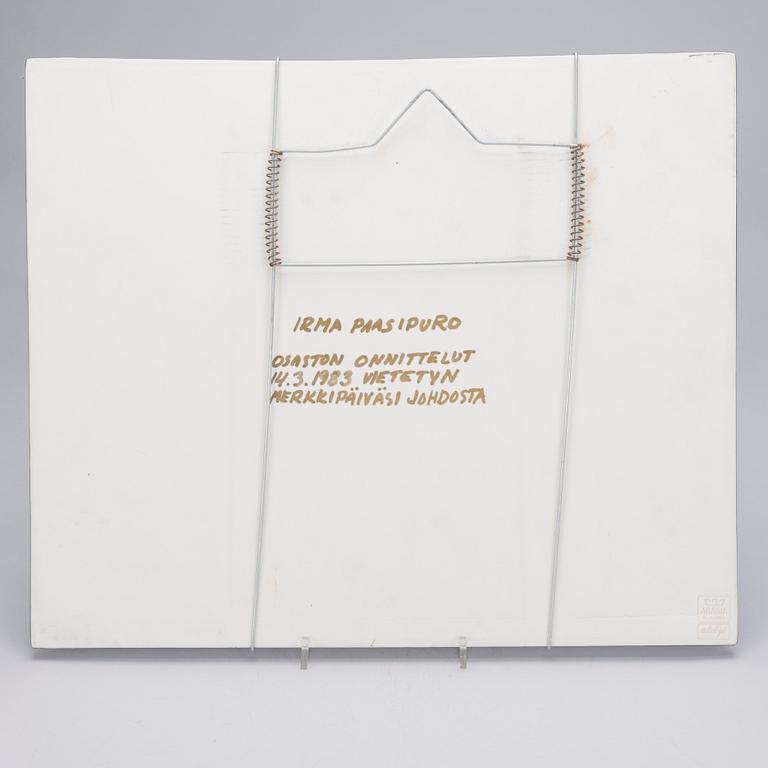 IRMA PAASIPURO
OSASTON ONNITTELUT
14.3.1983 VIETETYN
MERKKIPÄIVÄSI JOHDOSTA
ARABIA